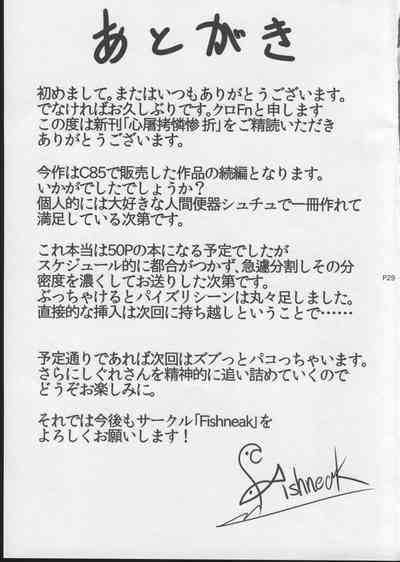 あとがき
初めまして。またはいつもありがとうございます。
でなければお久しぶりです。クロFnと申します
この度は新刊「心屠拷憐惨折」をご精読いただき
ありがとうございます。
今作はC85で販売した作品の続編となります。
いかがでしたでしょうか?
個人的には大好きな人間便器シュチュで一冊作れて
満足している次第です。
これ本当は50Pの本になる予定でしたが
スケジュール的に都合がつかず、急遽分割しその分
密度を濃くしてお送りした次第です。
ぶっちゃけるとパイズリシーンは丸々足しました。
直接的な挿入は次回に持ち越しということで……
予定通りであれば次回はズブっとパコっちゃいます。
さらにしぐれさんを精神的に追い詰めていくので
どうぞお楽しみに。
それでは今後もサークル「Fishneak」を
よろしくお願いします!
Fishneak
P29